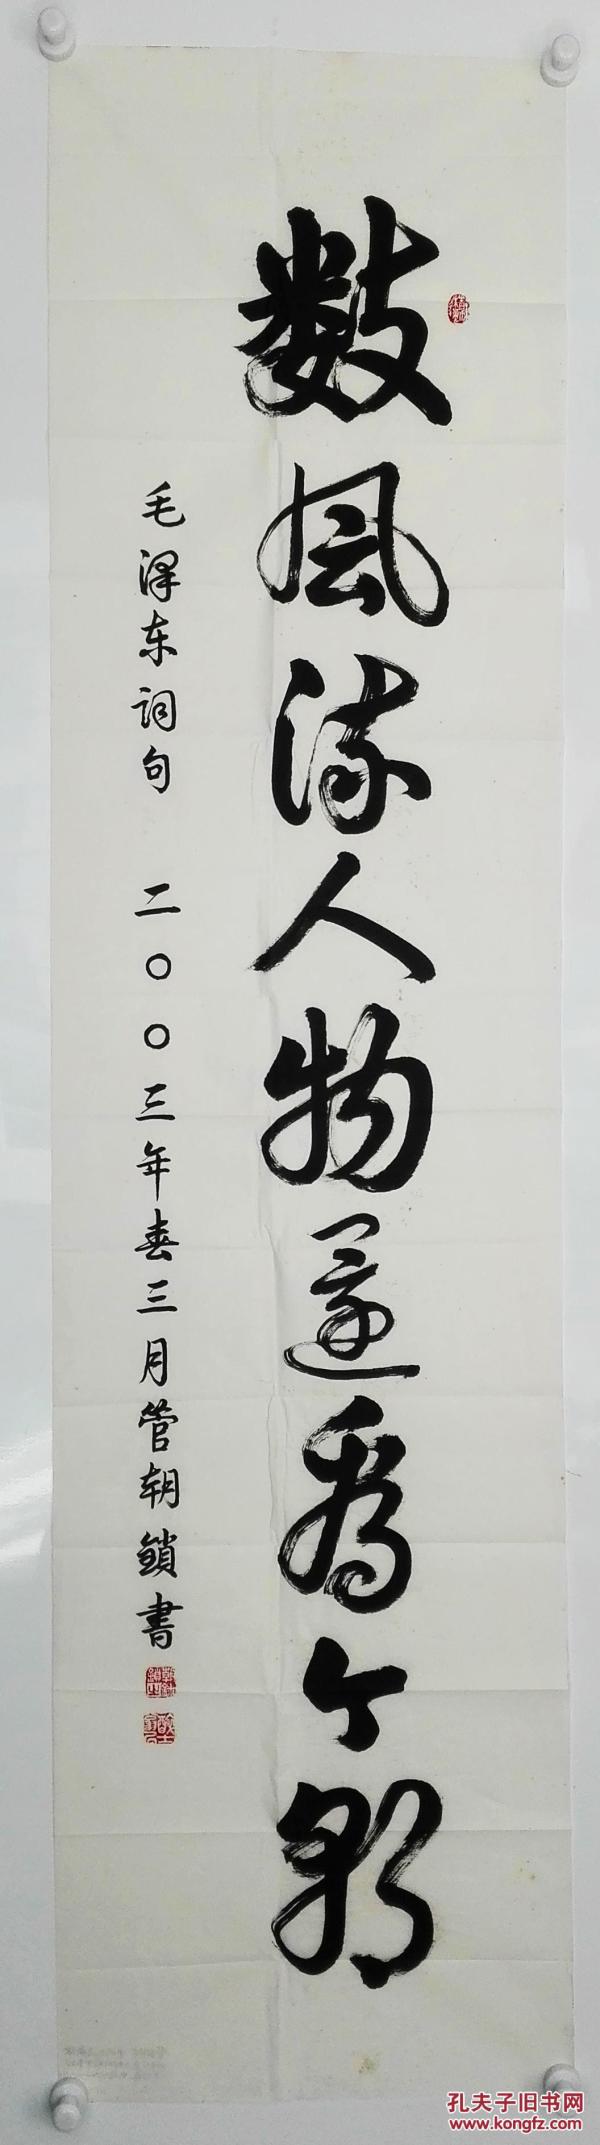 数风流人物還看今朝
毛泽东词句 二〇〇三年春三月管朝鎖書
孔夫子旧书网
www.kongfz.com